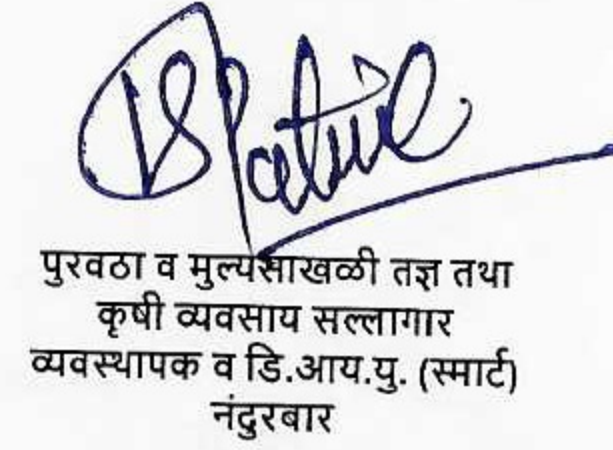 Patil
पुरवठा व मुल्यसाखळी तज्ञ तथा
कृषी व्यवसाय सल्लागार
व्यवस्थापक व डि.आय.यु. (स्मार्ट)
नंदुरबार